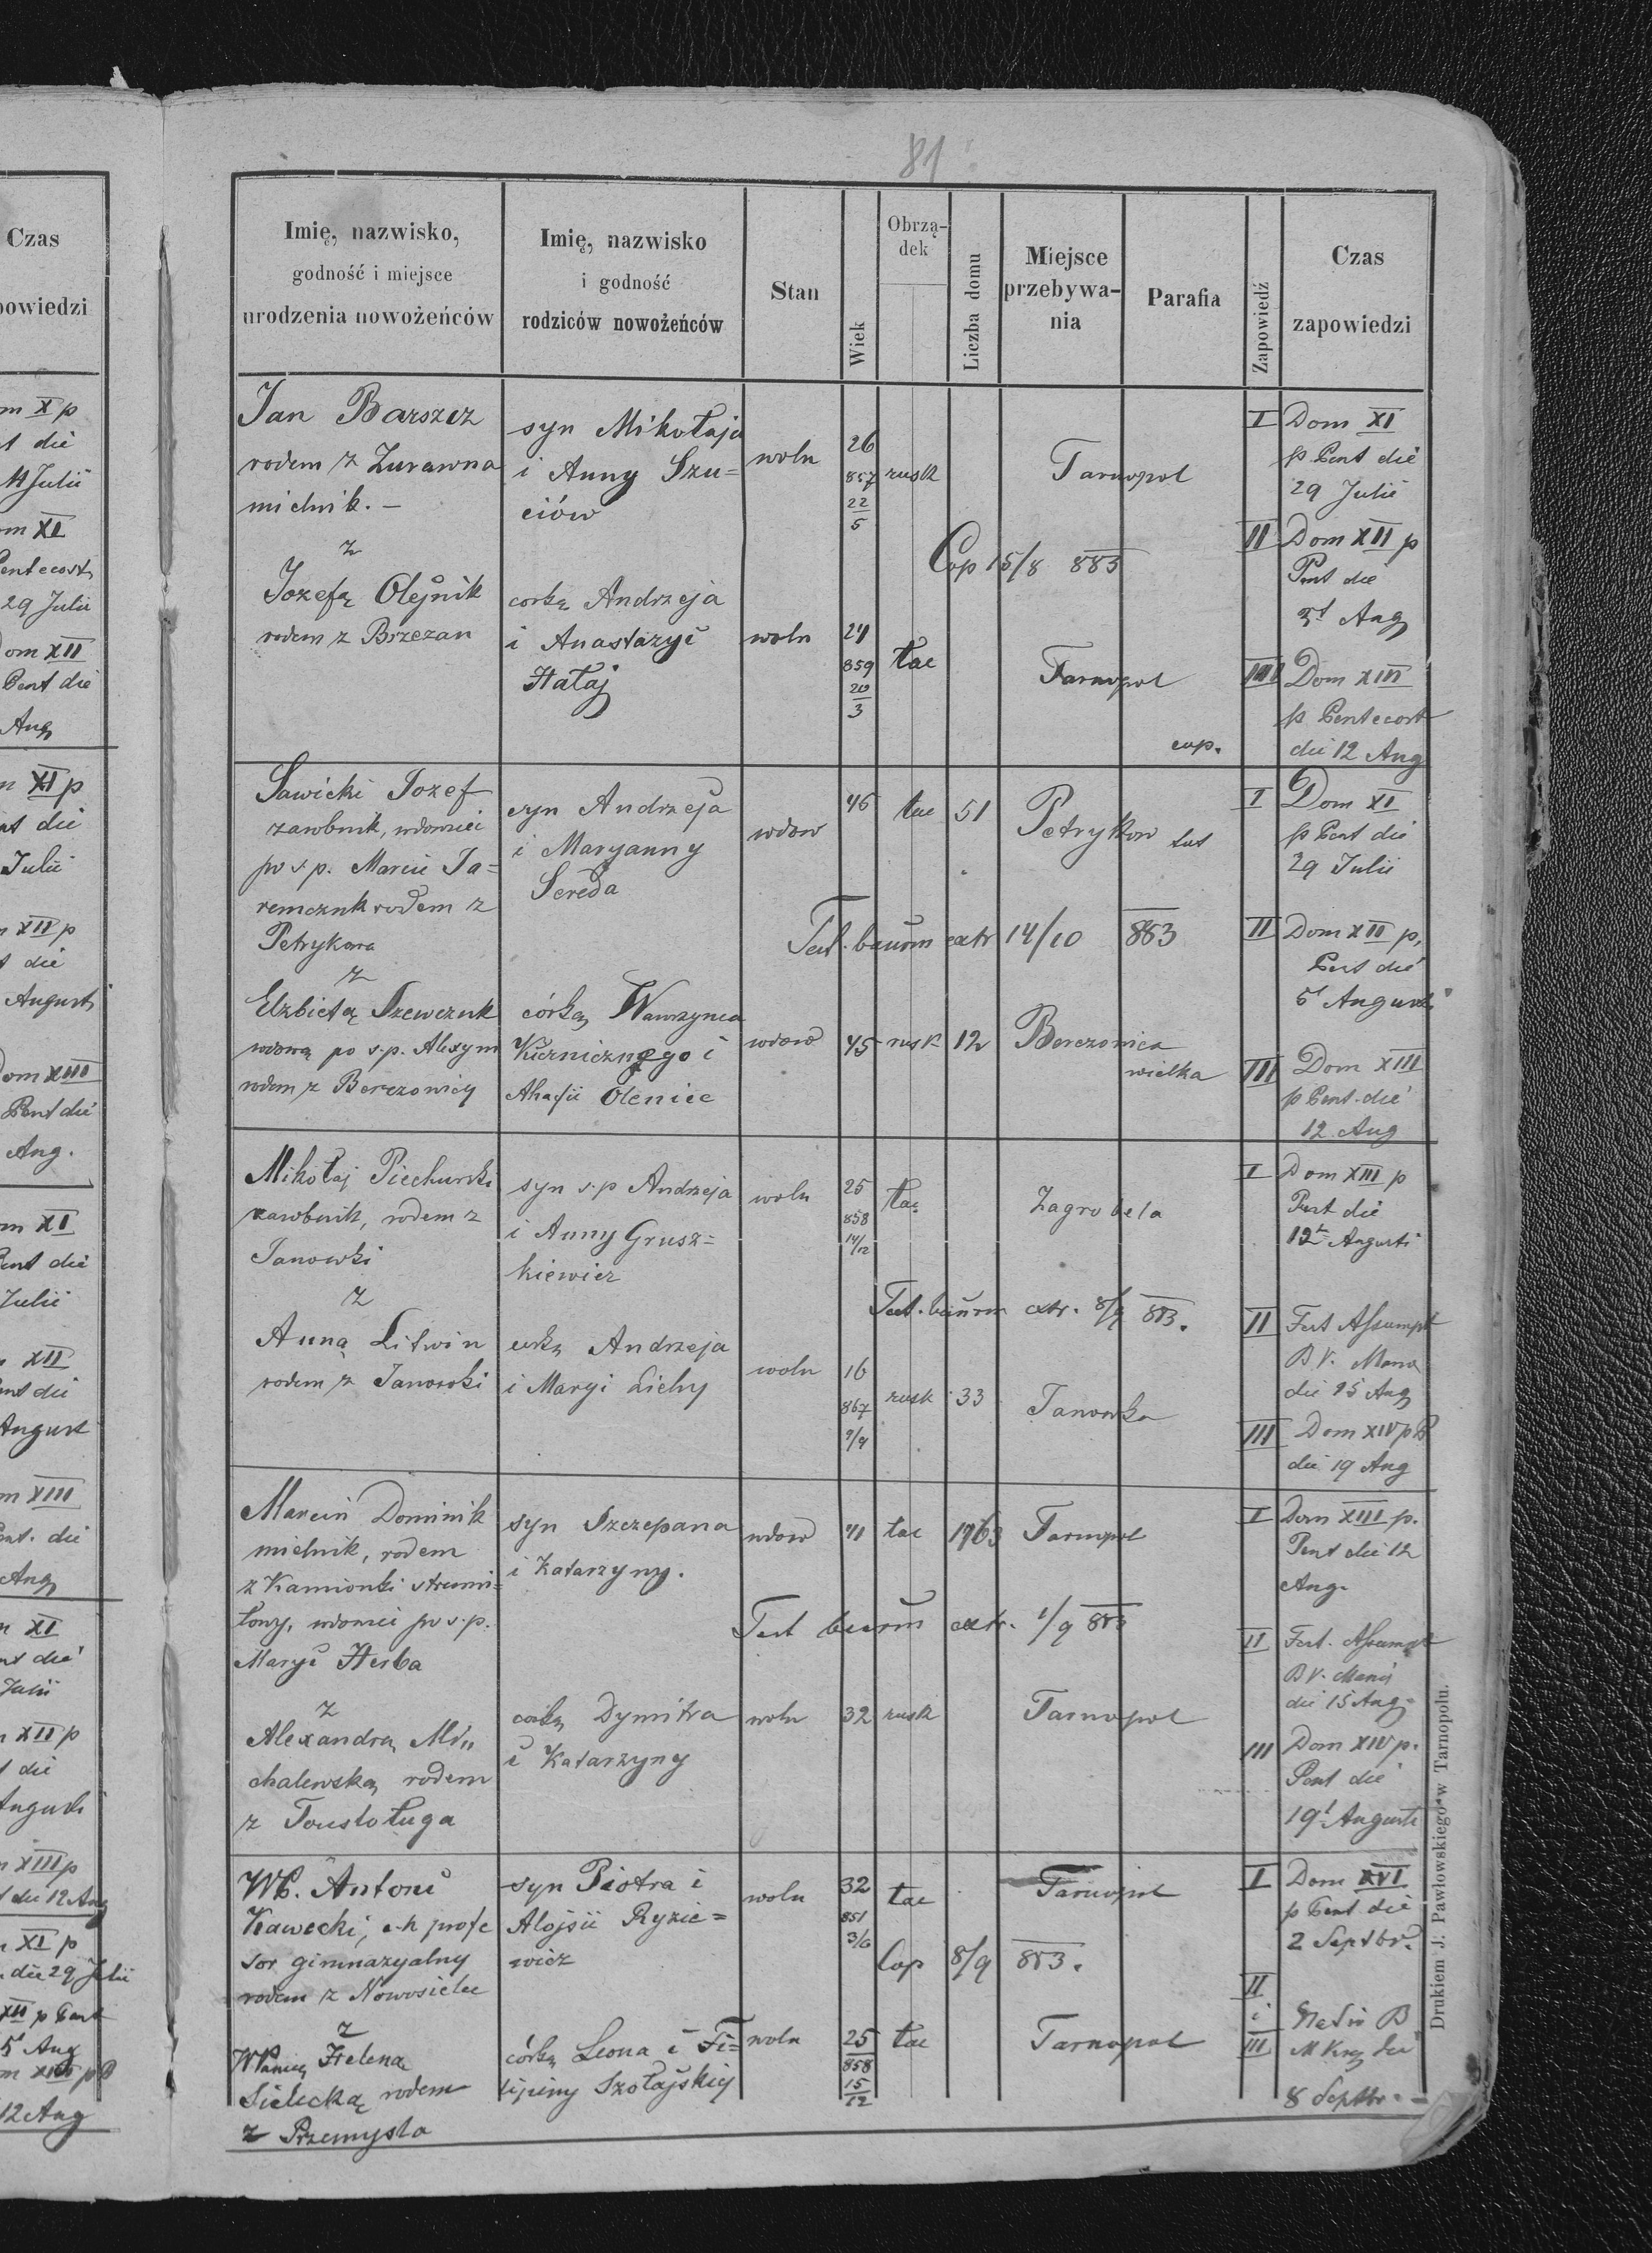 81
Czas
powiedzi
m X p
t die
11 Julii
m XI
Pentecost
29 Julii
Dom XII
Pent die
Aug
XI p
nt die
Julii
XII p
t die
Augusti
Dom XIII
Pent die
Aug.
m XI
Pent die
Julii
XII
nt die
August
m XIII
nt. die
Aug
XI
nt die
Julii
XII p
t die
Augusti
XIII p
t die 12 Aug
XI p
die 29 Julii
XII p Pent
5 Aug
12 Aug
Imię, nazwisko,
godność i miejsce
urodzenia nowożeńców
Imię, nazwisko
i godność
rodziców nowożeńców
Stan
Wiek
Obrzą-
dek
Liczba domu
Miejsce
przebywa-
nia
Parafia
Zapowiedź
Czas
zapowiedzi
Jan Barszcz
rodem z Zurawna
mielnik. –
z
Jozefą Olejnik
rodem z Brzezan
syn Mikołaja
i Anny Szu=
ciów
corką Andrzeja
i Anastazyi
Hałaj
woln
26
857
22
5
rusk
Tarnopol
Cop 15/8 883
woln
24
859
20
3
łac
Tarnopol
cop.
I Dom XI
p Pent die
29 Julii
II Dom XII p
Pent die
5t Aug
III Dom XIII
p Pentecost
die 12 Aug
Sawicki Jozef
zarobnik, wdowiec
po s p. Marii Ja=
remczuk rodem z
Petrykowa
z
Elzbietą Szewczuk
wdową po s.p. Alexym
rodem z Berezowicy
syn Andrzeja
i Maryanny
Sereda
córką Wawrzynca
Kuznicznego i
Ahafii Oleniec
wdow
46
łac
51
Petrykow
tut
Test. baurm extr 14/10 883
wdow
45
rusk
12
Berezowica
wielka
I Dom XI
p Pent die
29 Julii
II Dom XII p,
Pent die
5t Augusti
III Dom XIII
p Pent. die
12 Aug
Mikołaj Piechurski
zarobnik, rodem z
Janowki
z
Anną Litwin
rodem z Janowki
syn s.p Andrzeja
i Anny Grusz=
kiewicz
corką Andrzeja
i Maryi Lichy
woln
25
858
14/12
łac
Zagrobela
Test. baurm extr. 8/9 883.
woln
16
867
9/4
rusk
33
Janowka
I Dom XIII p
Pent die
12t Augusti
II Fest Assumpt
B V. Maria
die 15 Aug
III Dom XIV p P
die 19 Aug
Marcin Dominik
mielnik, rodem
z Kamionki strumi=
łowy, wdowiec po s.p.
Maryi Herba
z
Alexandrą Mi„
chalewską rodem
z Toustoługa
syn Szczepana
i Katarzyny.
corką Dymitra
i Katarzyny
wdow
41
łac
1763
Tarnopol
Test baurm extr. 1/9 883
woln
32
rusk
Tarnopol
I Dom XIII p.
Pent die 12
Aug.
II Fest. Assumpt
B V. Maria
die 15 Aug
III Dom XIV p.
Pent die
19t Augusti
Wł. Antoni
Kawecki, c-k profe
sor gimnazyalny
rodem z Nowosielec
z
WPanią Heleną
Sielecką rodem
z Przemysla
syn Piotra i
Alojsii Ryzie=
wicz
córką Leona i Fi=
lipiny Szołajskiej
woln
32
851
3/6
łac
Tarnopol
Cop 8/9 883.
woln
25
858
15
12
łac
Tarnopol
I Dom XVI
p Pent die
2 Septbr.
II
i
III
8 Septbr. –
Drukiem J. Pawłowskiego w Tarnopolu.